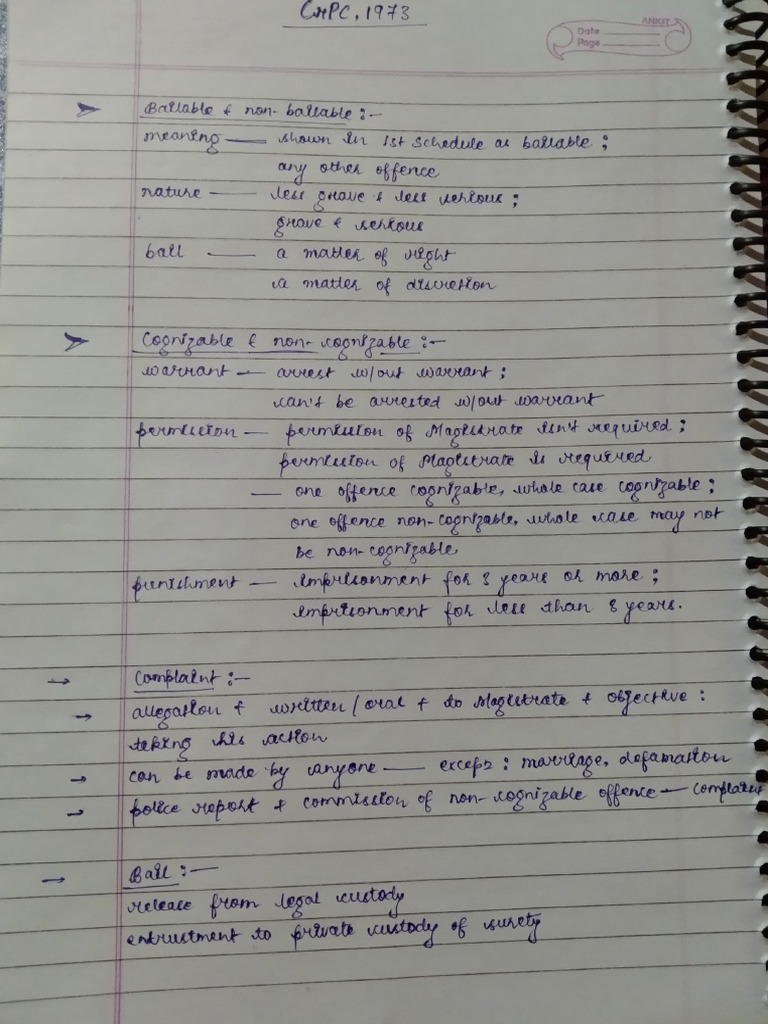 CrPC, 1973
ANKIT
Date
Page
Bailable & non-bailable :-
meaning — shown in 1st Schedule as bailable ;
any other offence
nature — less grave & less serious ;
grave & serious
bail — a matter of right
a matter of discretion
Cognizable & non-cognizable :-
warrant — arrest w/out warrant ;
can't be arrested w/out warrant
permission — permission of Magistrate isn't required ;
permission of Magistrate is required
— one offence cognizable, whole case cognizable ;
one offence non-cognizable, whole case may not
be non-cognizable
punishment — imprisonment for 3 years or more ;
imprisonment for less than 3 years.
→ Complaint :-
→ allegation + written / oral + to Magistrate + objective :
taking his action
→ can be made by anyone — excep? : marriage, defamation
→ police report + commission of non-cognizable offence — complaint
→ Bail :-
release from legal custody
entrustment to private custody of surety